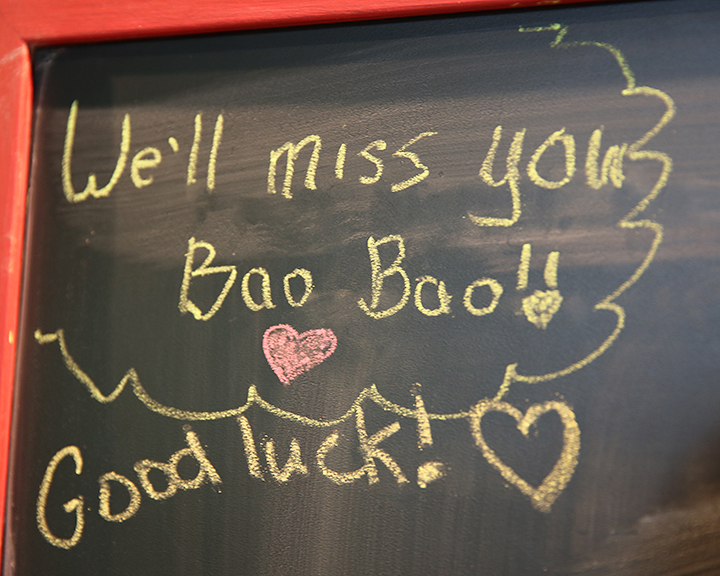 We'll miss you
Bao Bao!!
Good luck!